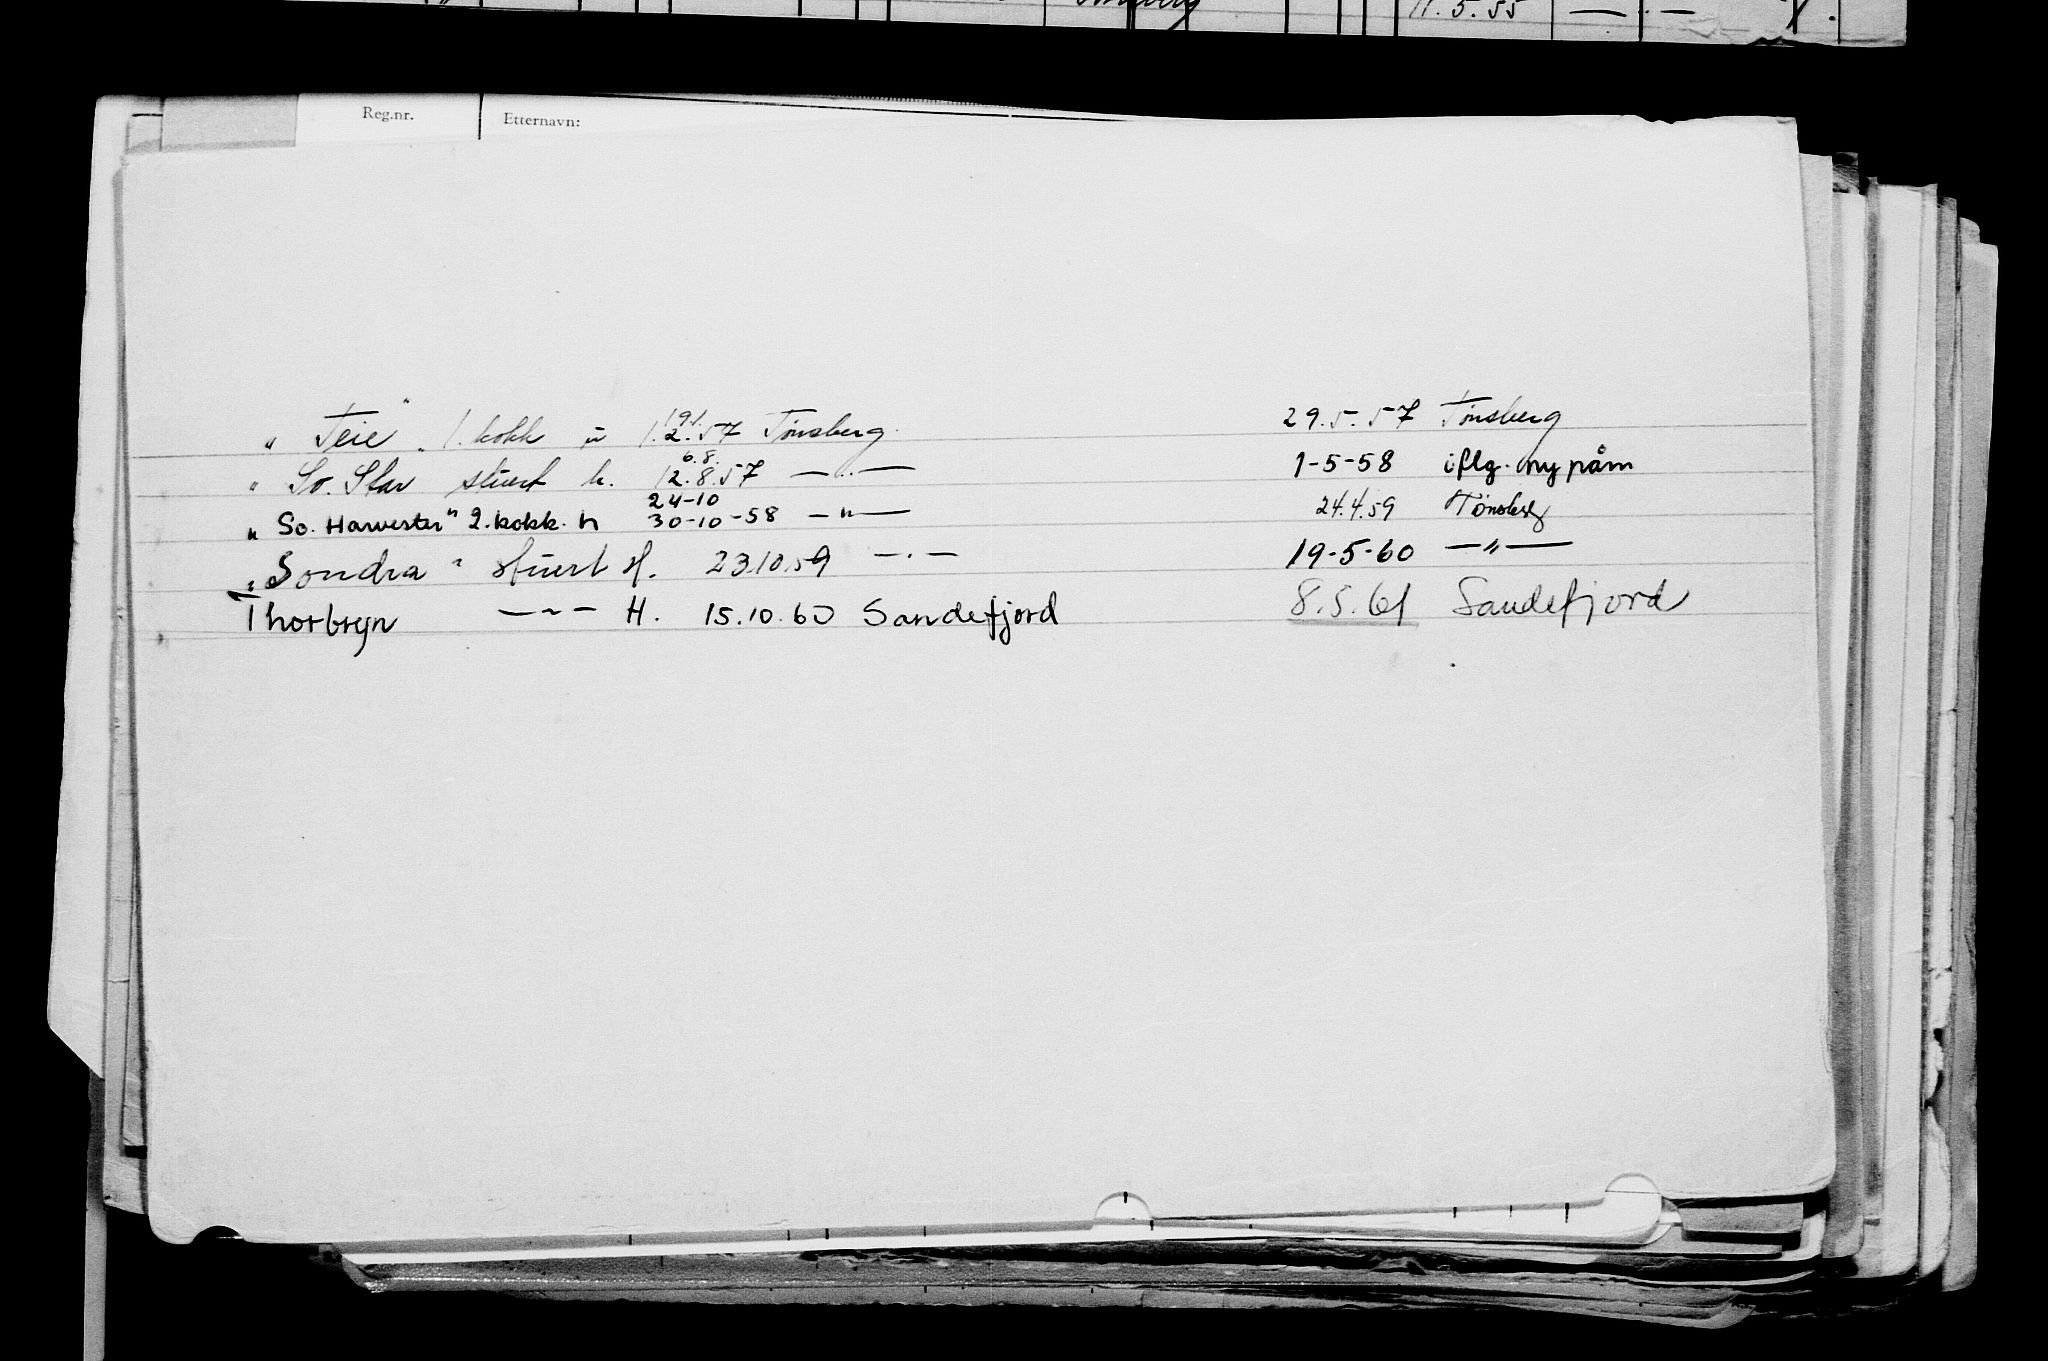 11.5.55 — . —
Reg.nr. Etternavn:
" Teie " 1. kokk u 19/1. 1.2.57 Tønsberg. 29.5.57 Tønsberg
" So. Star stuert h. 6.8. 12.8.57 — .. — 1-5-58 iflg. ny påm
" So. Harvester" 2. kokk. h 24-10 30-10-58 — " — 24.4.59 Tønsberg
"Sondra " stuert H. 23.10.59 — . — 19-5-60 — " —
Thorbryn — " — H. 15.10.60 Sandefjord 8.5.61 Sandefjord